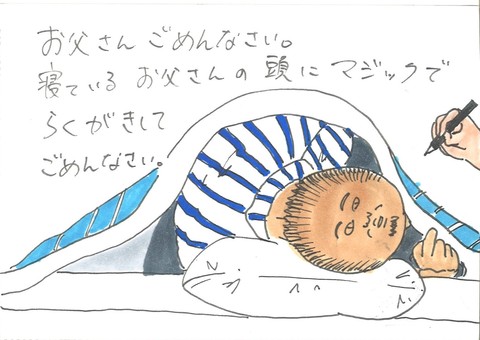 お父さん ごめんなさい。
寝ている お父さんの 頭に マジックで
らくがきして
ごめんなさい。